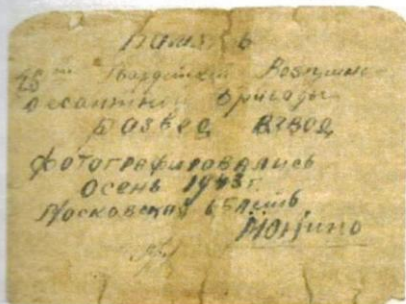 Память
Гвардейской Воздушно-
десантной бригады
Развед взвод
фотографировались
Осень 1943 г.
Московская область
Монино